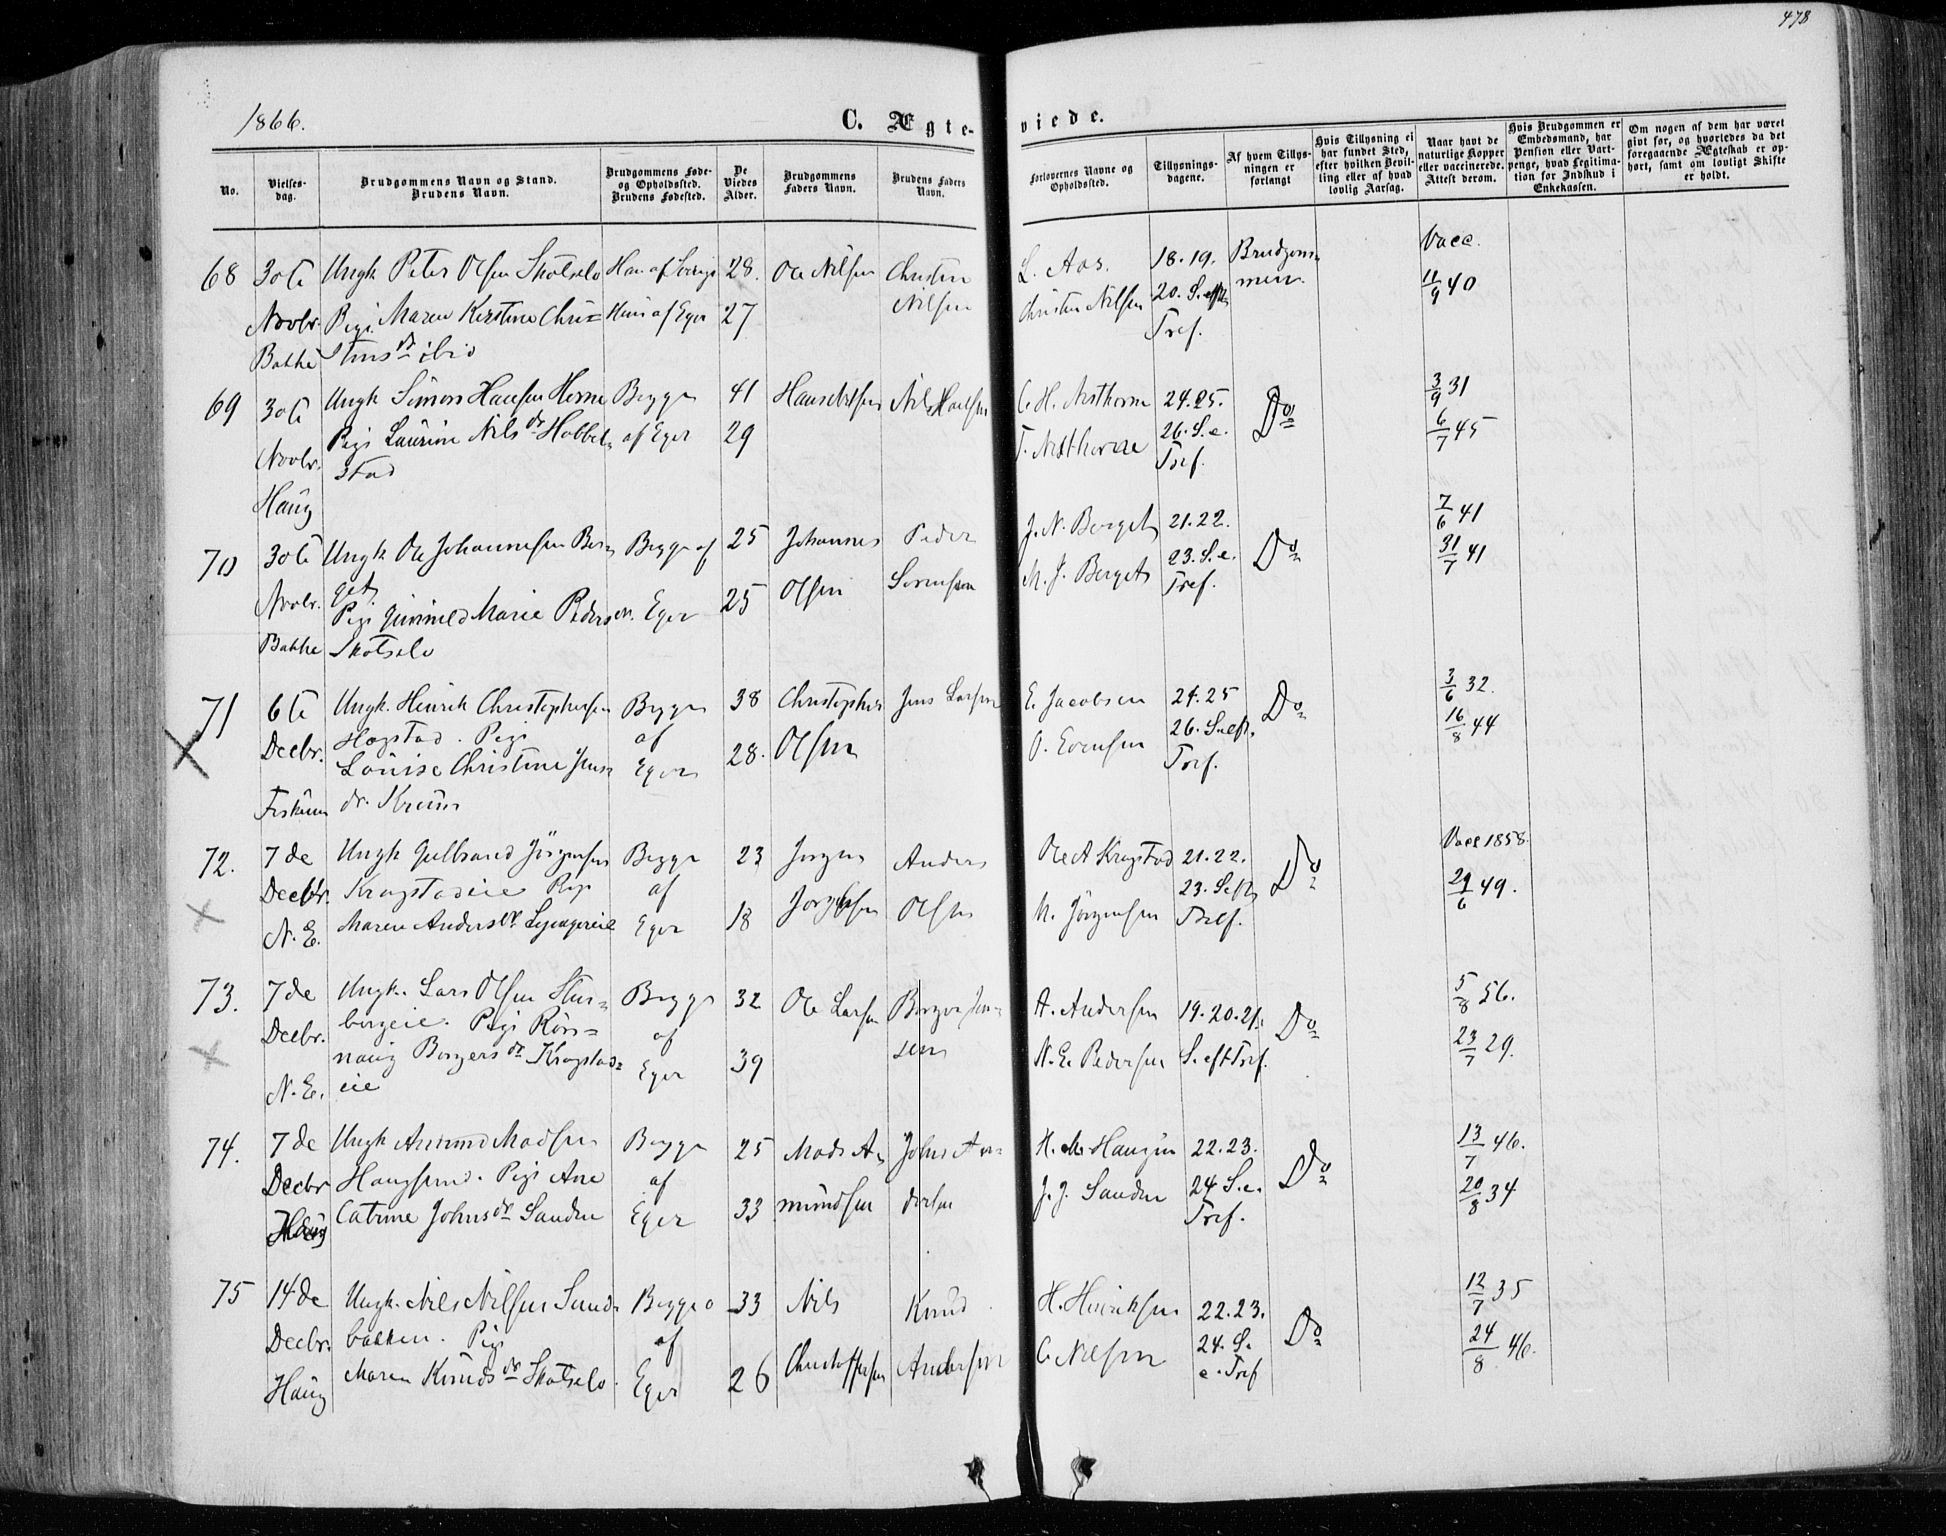 478
1866.
C. Ægte-
viede.
No.
Vielses-
dag.
Brudgommens Navn og Stand.
Brudens Navn.
Brudgommens Føde-
og Opholdssted.
Brudens Fødested.
De
Viedes
Alder.
Brudgommens
Faders Navn.
Brudens Faders
Navn.
Forlovernes Navne og
Opholdssted.
Tillysnings-
dagene.
Af hvem Tillys-
ningen er
forlangt
Hvis Tillysning ei
har fundet Sted,
efter hvilken Bevil-
ling eller af hvad
lovlig Aarsag.
Naar havt de
naturlige Kopper
eller vaccinerede.
Attest derom.
Hvis Brudgommen er
Embedsmand, har
Pension eller Vart-
penge, hvad Legitima-
tion for Indskud i
Enkekassen.
Om nogen af dem har været
givt før, og hvorledes da det
foregaaende Ægteskab er op-
hørt, samt om lovligt Skifte
er holdt.
68 30te Ungk Peter Olsen Skotselv Han af Sverige 28. Ole Nilsen Christen L. Aas. 18. 19. Brudgom- Vacc.
Novbr. Pige Maren Kirstine Chri= Hun af Eger 27 Nilsen Christen Nilsen 20. S. eft men. 11/9 40
Bakke stens dr ibid Tref.
69 30te Ungk Simon Hansen Horne Begge 41 Hans Nilsen Nils Hansen C. H. Nesthorne 24. 25. Do 3/9 31
Novbr. Pige Laurine Nils dr Hobbel= af Eger 29 T. Nesthorne 26. S. e. 6/7 45
Haug stad Tref.
70 30te Ungk Ole Johannesen Ber= Begge af 25 Johannes Peder J. N. Berget 21. 22. Do 7/6 41
Novbr. get. Eger 25 Olsen Sørensen M. J. Berget 23. S. e. 31/7 41
Pige Gunnild Marie Peders dr. Tref.
Bakke Skotselv
71 6te Ungk. Henrik Christophersen Begge 38 Christopher Jens Larsen E. Jacobsen 24. 25 Do 3/6 32.
Decbr. Hogstad. Pige af 28. Olsen O. Evensen 26. S. eft. 16/8 44
Louise Christine Jens= Eger Tref.
Fiskum dr. Kruum
72. 7de Ungk Gulbrand Jörgensen Begge 23 Jørgen Anders Ole A Kragstad 21. 22. Do Vacc 1858.
Decbr. Kragstadeie Pige af 23. S. eft 29/6 49.
N. E. Maren Anders dr Eger 18 Jørgensen Olsen N. Jörgensen Tref.
73. 7de Ungk. Lars Olsen Stur= Begge 32 Ole Larsen Borger Jen= A. Andersen 19. 20. 21. Do 5/8 56.
Decbr. bergeie. Pige Røn= af sen N. E. Pedersen S. eft Tref. 23/7 29.
N. E. naug Borgers dr Kragstad= Eger 39
eie
74. 7de Ungk Amund Madsen Begge 25 Mads A= Johns An= H. M. Haugen 22. 23. Do 13/7 46.
Decbr Haugsund. Pige Ane af 24 S. e. 20/8 34
Haug Catrine Johns dr Sanden Eger 33 mundsen dersen J. J. Sanden Tref.
75 14de Ungk. Nils Nilsen Sund= Begge 33 Nils Knud H. Henriksen 22. 23. Do 12/7 35
Decbr. bakken. Pige af 24. S. 24/8 46.
Haug Maren Knuds dr Skotselv. Eger 26 Christoffersen Andersen C. Nilsen e. Tref